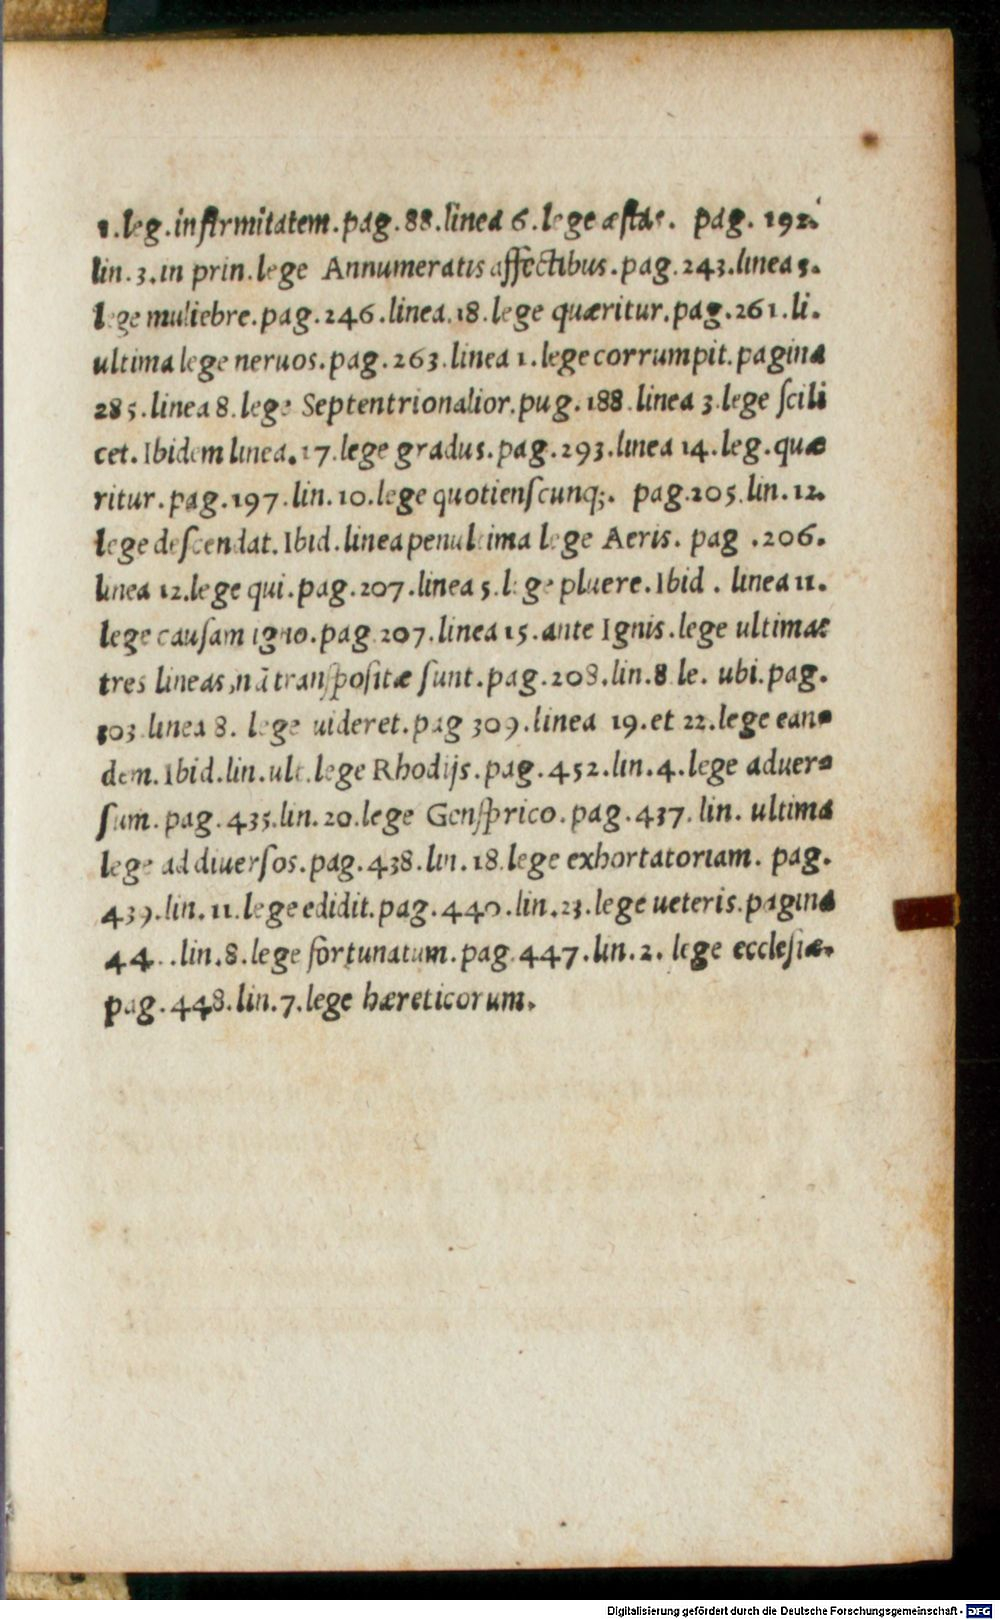 1.leg.infirmitatem.pag.88.linea 6.lege æſtas. pag. 192.
lin.3.in prin.lege Annumeratis affectibus.pag.243.linea 5.
lege muliebre.pag.246.linea.18.lege quæritur.pag.261.li.
ultima lege neruos.pag.263.linea 1.lege corrumpit.pagina
285.linea 8.lege Septentrionalior.pug.188.linea 3.lege ſcili
cet.Ibidem linea.17.lege gradus.pag.293.linea 14.leg.quæ
ritur.pag.197.lin.10.lege quotienſcunq;. pag.205.lin.12.
lege deſcendat.Ibid.linea penultima lege Aeris. pag .206.
linea 12.lege qui.pag.207.linea 5.lege pluere.Ibid . linea 11.
lege cauſam igno.pag.207.linea 15.ante Ignis.lege ultimas
tres lineas,nā tranſpoſitæ ſunt.pag.208.lin.8 le. ubi.pag.
303.linea 8. lege uideret.pag 309.linea 19.et 22.lege ean-
dem.Ibid.lin.ult.lege Rhodijs.pag.452.lin.4.lege aduer-
ſum.pag.435.lin.20.lege Genſprico.pag.437.lin. ultima
lege ad diuerſos.pag.438.lin.18.lege exhortatoriam. pag.
439.lin.11.lege edidit.pag.440.lin.23.lege ueteris.pagina
44 .lin.8.lege fortunatum.pag.447.lin.2. lege eccleſiæ.
pag.448.lin.7.lege hæreticorum.
Digitalisierung gefördert durch die Deutsche Forschungsgemeinschaft - DFG